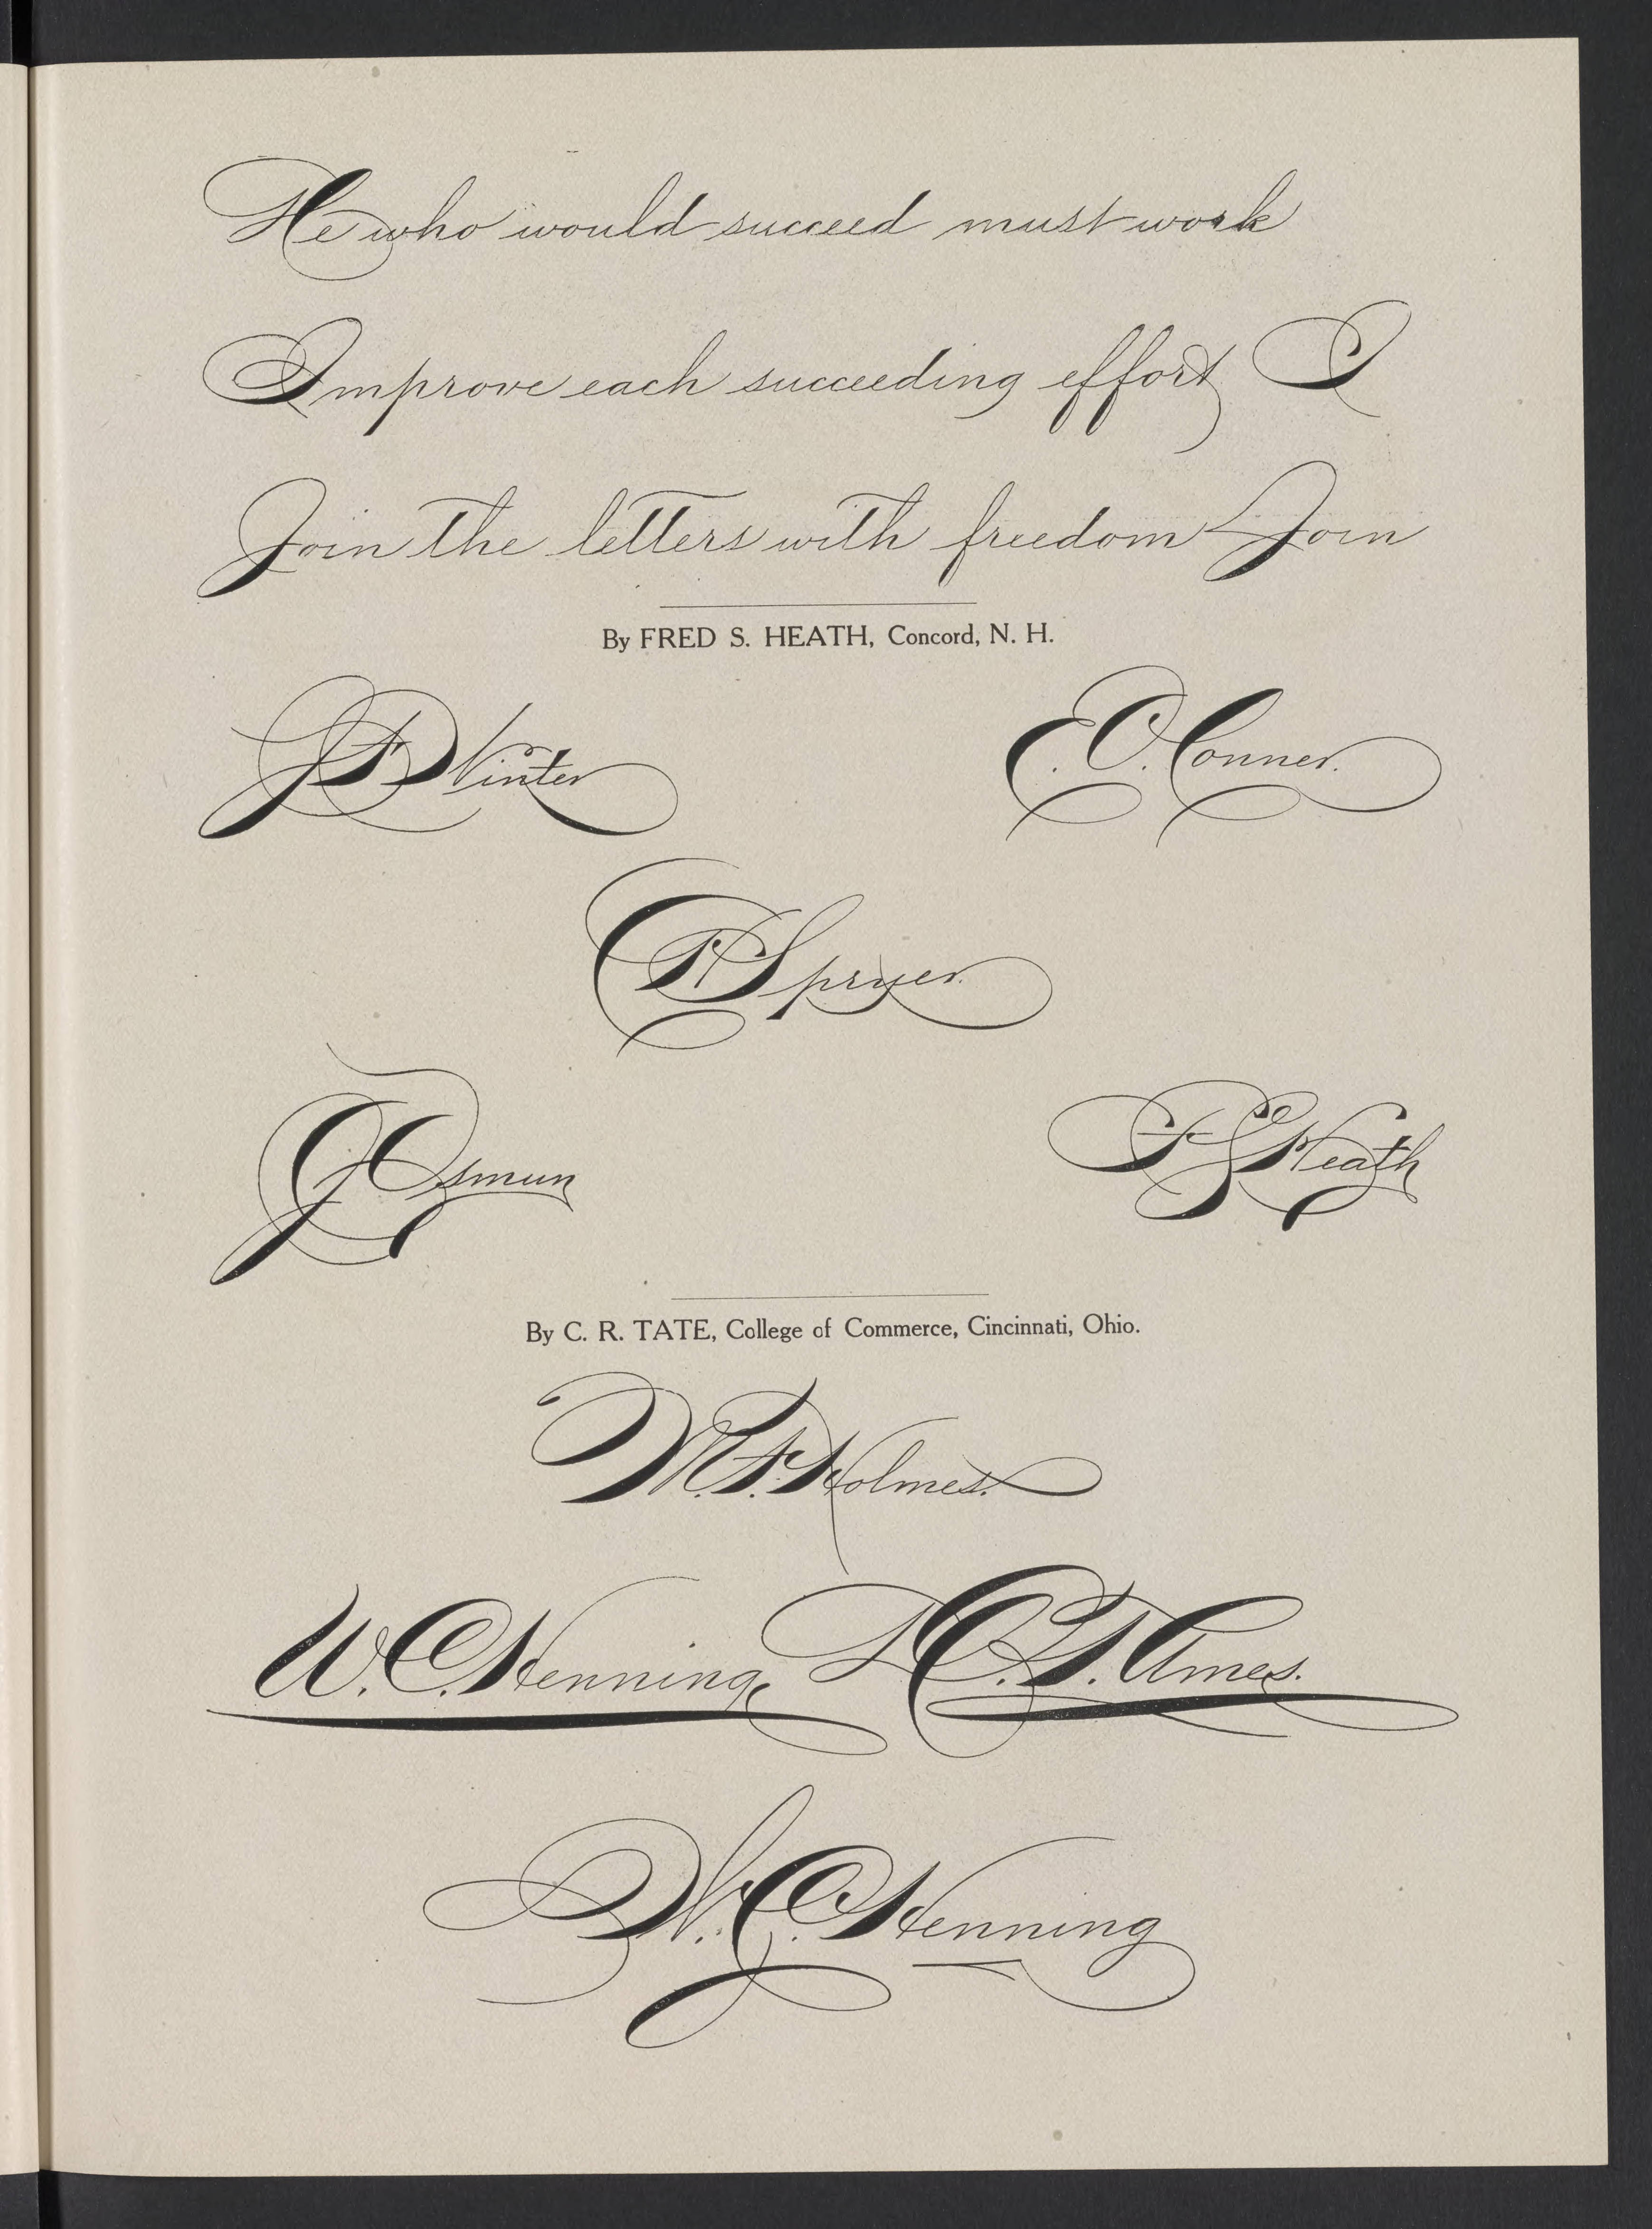 He who would succeed must work
Improve each succeeding effort I
Join the letters with freedom Join
By FRED S. HEATH, Concord, N. H.
J F Winter
E. O. Conner.
C R Spryer.
J C Osmun
F S Heath
By C. R. TATE, College of Commerce, Cincinnati, Ohio.
M. F. Holmes.
W. C. Henning
D. C. T. Ames.
W. C. Henning